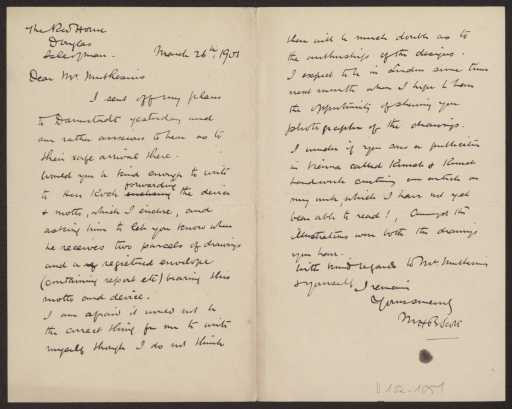 The Red House
Douglas
Isle of Man. March 26th 1901
Dear Mr Muthesius
I sent off my plans
to Darmstadt yesterday and
am rather anxious to hear as to
their safe arrival there.
Would you be kind enough to write
to Herr Koch forwarding enclosing the device
& motto, which I enclose, and
asking him to let you know when
he receives two parcels of drawings
and a registered envelope
(containing report etc) bearing this
motto and device.
I am afraid it would not be
the correct thing for me to write
myself though I do not think
there will be much doubt as to
the authorship of the designs.
I expect to be in London some time
next month when I hope to have
the opportunity of showing you
photographs of the drawings.
I wonder if you saw a publication
in Vienna called Kunst & Kunst
handwerk containing an article on
my work which I have not yet
been able to read!, Amongst the
illustrations were both the drawings
you have.
With kind regards to Mrs Muthesius
& yourself I remain
Yours sincerely
M H B Scott